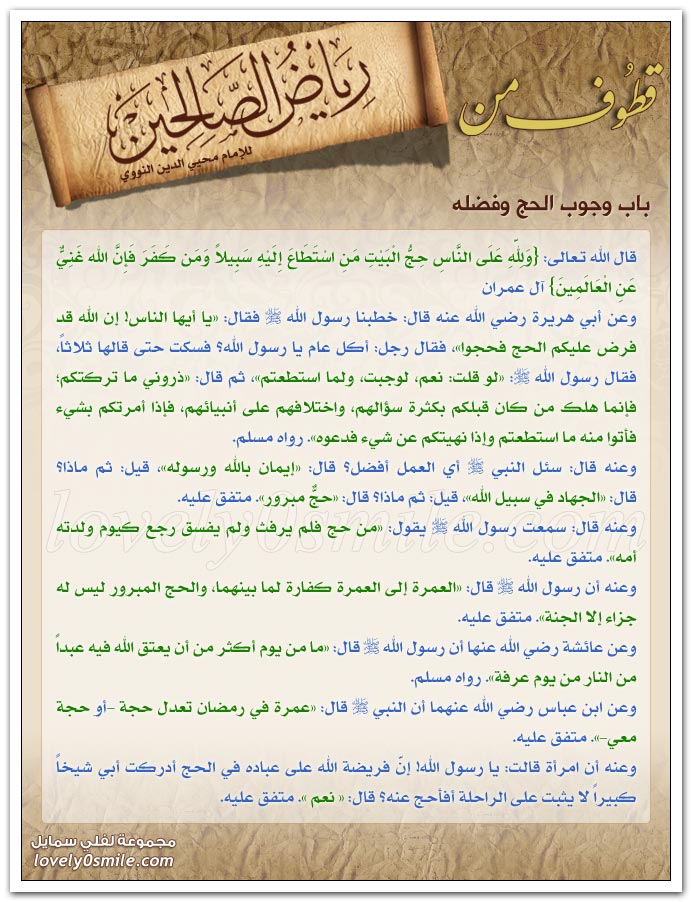 قطوف من
رياض الصالحين
للإمام محيي الدين النووي
باب وجوب الحج وفضله
قال الله تعالى: {وَلِلّهِ عَلَى النَّاسِ حِجُّ الْبَيْتِ مَنِ اسْتَطَاعَ إِلَيْهِ سَبِيلاً وَمَن كَفَرَ فَإِنَّ الله غَنِيٌّ
عَنِ الْعَالَمِينَ} آل عمران
وعن أبي هريرة رضي الله عنه قال: خطبنا رسول الله ﷺ فقال: «يا أيها الناس! إن الله قد
فرض عليكم الحج فحجوا»، فقال رجل: أكل عام يا رسول الله؟ فسكت حتى قالها ثلاثاً،
فقال رسول الله ﷺ: «لو قلت: نعم، لوجبت، ولما استطعتم»، ثم قال: «ذروني ما تركتكم؛
فإنما هلك من كان قبلكم بكثرة سؤالهم، واختلافهم على أنبيائهم، فإذا أمرتكم بشيء
فأتوا منه ما استطعتم وإذا نهيتكم عن شيء فدعوه». رواه مسلم.
وعنه قال: سئل النبي ﷺ أي العمل أفضل؟ قال: «إيمان بالله ورسوله»، قيل: ثم ماذا؟
قال: «الجهاد في سبيل الله»، قيل: ثم ماذا؟ قال: «حجٌّ مبرور». متفق عليه.
وعنه قال: سمعت رسول الله ﷺ يقول: «من حج فلم يرفث ولم يفسق رجع كيوم ولدته
أمه». متفق عليه.
وعنه أن رسول الله ﷺ قال: «العمرة إلى العمرة كفارة لما بينهما، والحج المبرور ليس له
جزاء إلا الجنة». متفق عليه.
وعن عائشة رضي الله عنها أن رسول الله ﷺ قال: «ما من يوم أكثر من أن يعتق الله فيه عبداً
من النار من يوم عرفة». رواه مسلم.
وعن ابن عباس رضي الله عنهما أن النبي ﷺ قال: «عمرة في رمضان تعدل حجة -أو حجة
معي-». متفق عليه.
وعنه أن امرأة قالت: يا رسول الله! إنّ فريضة الله على عباده في الحج أدركت أبي شيخاً
كبيراً لا يثبت على الراحلة أفأحج عنه؟ قال: « نعم ». متفق عليه.
lovely0smile.com
مجموعة لفلي سمايل
lovely0smile.com